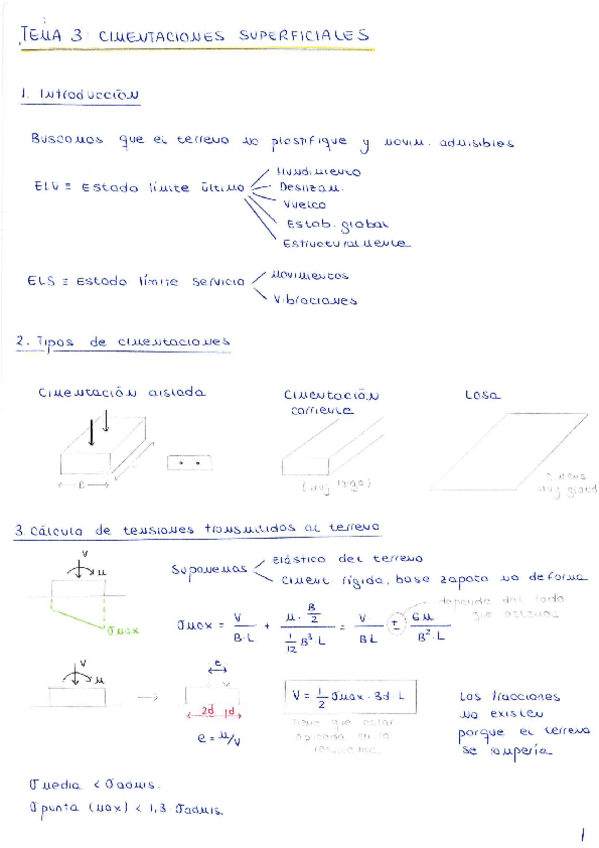 TEMA 3: CIMENTACIONES SUPERFICIALES
1. Introducción
Buscamos que el terreno no plastifique y movim. admisibles
ELU ≡ Estado límite último
Hundimiento
Deslizam.
Vuelco
Estab. global
Estructuralmente
ELS ≡ Estado límite servicio
Movimientos
Vibraciones
2. Tipos de cimentaciones
Cimentación aislada
Cimentación corriente
Losa
B
(muy larga)
muy grand
3 Cálculo de tensiones transmitidas al terreno
V
M
σmax
Suponemos
Elástico del terreno
Ciment rígida, base zapata no deforma
depende del lado
σmax = V / B·L + M · B/2 / 1/12 B³·L = V / BL ± 6M / B²·L
V
M
e
2d d
e = M/V
V = 1/2 σmax · 3d · L
tiene que estar
aplicada en la
Las tracciones
no existen
porque el terreno
se rompería
σmedia < σadmis.
σpunta (max) < 1,3 · σadmis.
1